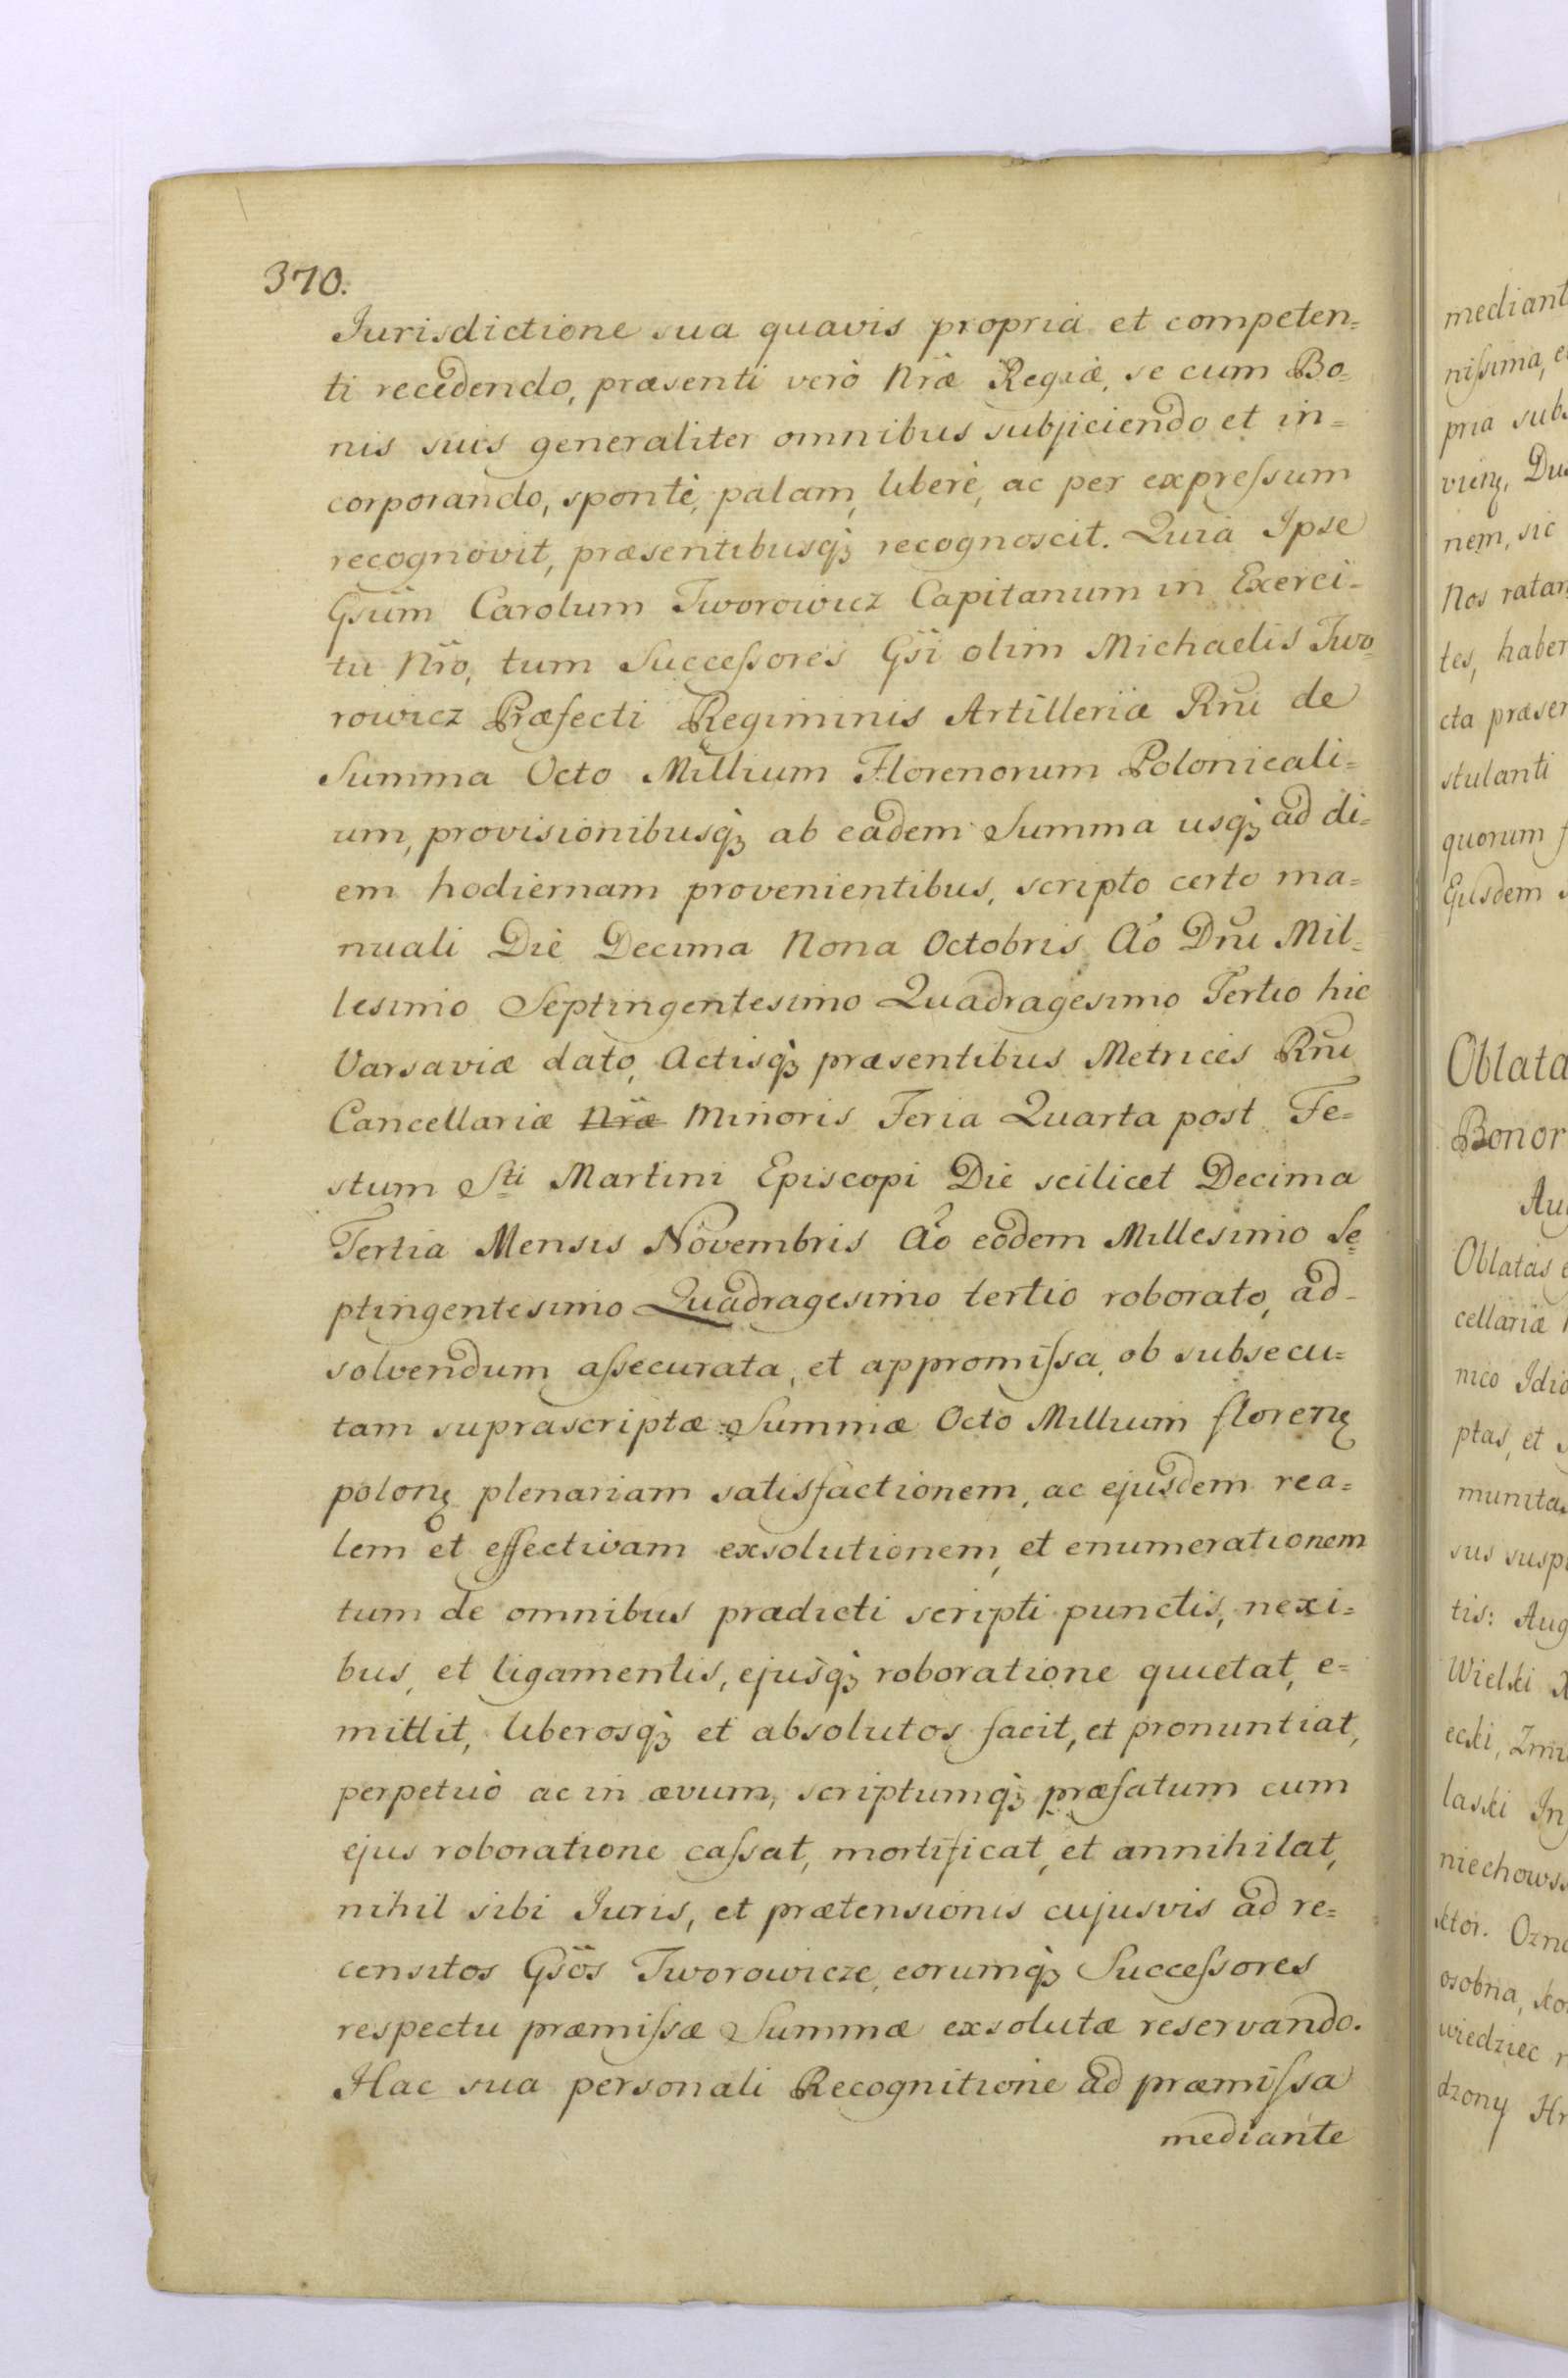 370.
Jurisdictione sua quavis propria et competen=
ti recedendo, præsenti verò Nræ Regiæ, se cum Bo=
nis suis generaliter omnibus subjiciendo et in=
corporando, spontè, palam, liberè, ac per expreſsum
recognovit, præsentibusq̀ꝫ recognoscit. Quia Ipse
Gsum Carolum Tworowicz Capitanum in Exerci=
tu Nro, tum Succeſsores Gsi olim Michaelis Two=
rowicz Præfecti Regiminis Artilleriæ Rni de
Summa Octo Millium Florenorum Polonicali=
um, provisionibusq̀ꝫ ab eadem Summa usq̀ꝫ ad di=
em hodiernam provenientibus, scripto certo ma=
nuali Die Decima Nona Octobris Ao Dni Mil=
lesimo Septingentesimo Quadragesimo Tertio hic
Varsaviæ dato, Actisq̀ꝫ præsentibus Metrices Rni
Cancellariæ Nræ Minoris Feria Quarta post Fe=
stum Sti Martini Episcopi Die scilicet Decima
Tertia Mensis Novembris Ao eodem Millesimo Se=
ptingentesimo Quadragesimo tertio roborato, ad=
solvendum aſsecurata, et appromiſsa, ob subsecu=
tam suprascriptæ Summæ Octo Millium floren̨
polon̨ plenariam satisfactionem, ac ejusdem rea=
lem et effectivam exsolutionem, et enumerationem
tum de omnibus prædicti scripti punctis, nexi=
bus, et ligamentis, ejusq̀ꝫ roboratione quietat, e=
mittit, liberosq̀ꝫ et absolutos facit, et pronuntiat,
perpetuò ac in ævum, scriptumq̀ꝫ præfatum cum
ejus roboratione caſsat, mortificat, et annihilat,
nihil sibi Juris, et prætensionis cujusvis ad re=
censitos Gsos Tworowicze, eorumq̀ꝫ Succeſsores
respectu præmiſsæ Summæ exsolutæ reservando.
Hac sua personali Recognitione ad præmiſsa
mediante
mediant
niſsima, e
pria subs
vien̨, Du
nem, sic
Nos ratam
tes, haber
cta præsen
stulanti
quorum f
Ejusdem
Oblata
Bonor
Au
Oblatas e
cellariæ
nico Idio
ptas, et
munita
sus susp
tis: Aug
Wielki X
ecki, Zmu
laski In
niechows
ktor. Ozna
osobna, ko
wiedziec
dzony Hr